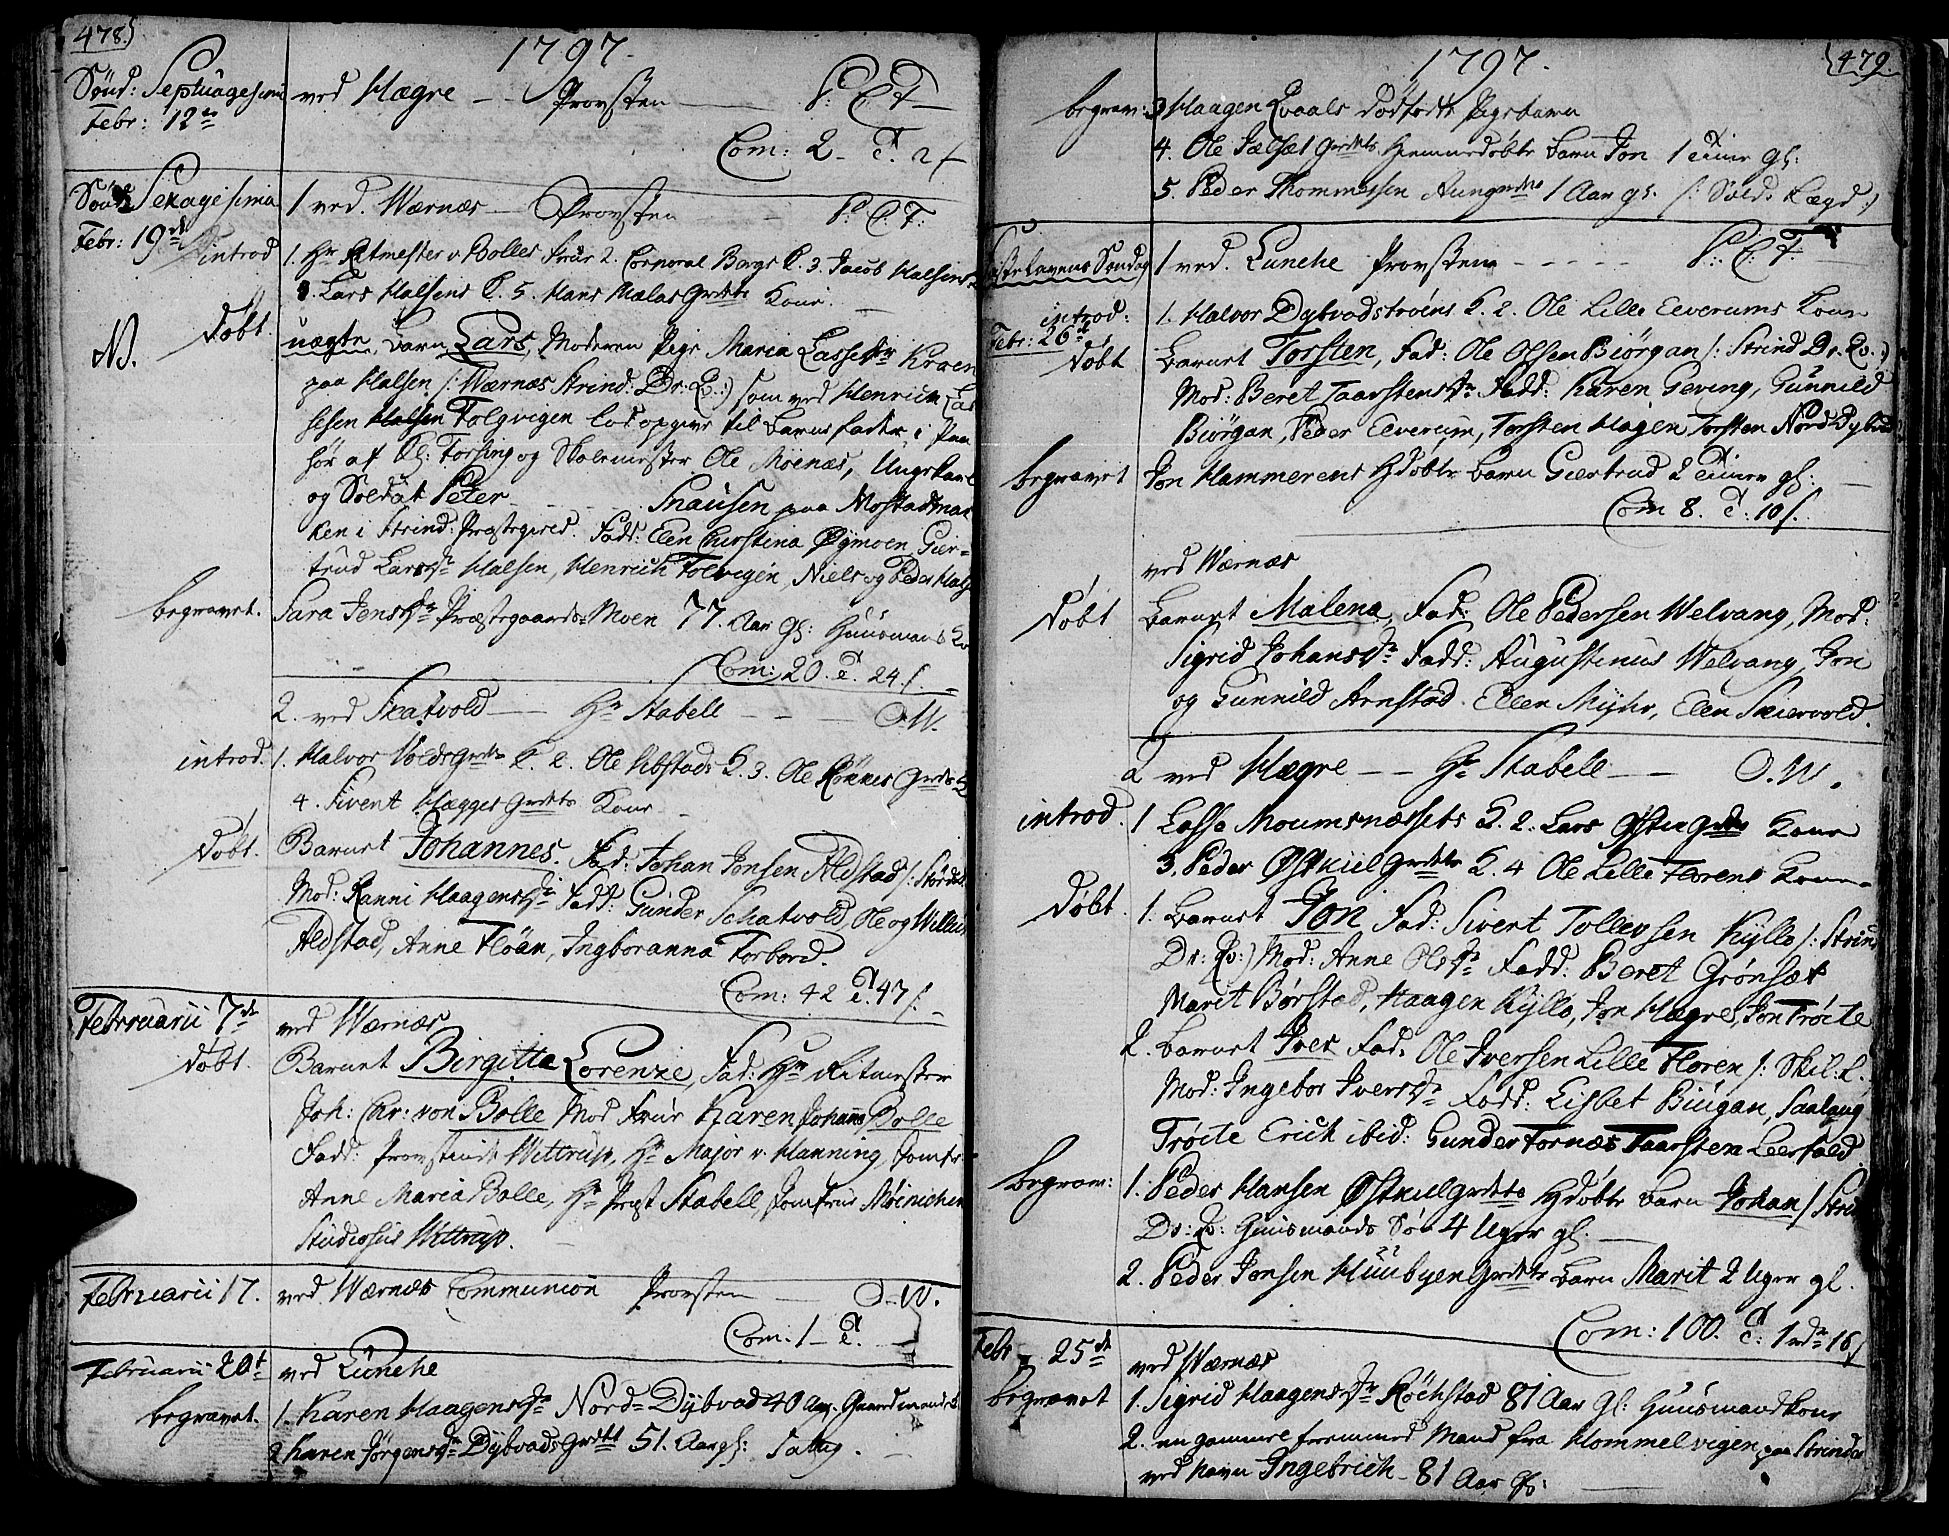 478.
1797.
Sönd: Septuagesima ved Hægre -- Provsten -- P: C: T
Febr: 12te
Com: 2 - T. 2 f
Sönd Sexagesima 1 ved. Wærnæs -- Provsten -- P. C. T.
Febr: 19de
introd 1. Hr Ritmester v. Bolles Frür 2. Corporal Bergs K. 3. Jacob Halsens
Lars Halsens K. 5. Hans Mælas Grdets Kone.
N. döbt. uægte Barn Lars, Moderen Pige Maria Lassesdr
paa Halsen /: Wærnæs Strind: Dr. Q:) som ved Henrich Las
sesen Halsen Folgvigen lod opgive til Barnefader, i Paa
hör af Kl: Forsing og Skolemester Ole Moenæs, Ungekarl
og Soldat Peter - - - Snausen paa Mostadmar
ken i Strind: Præstegield. Fadd: Elen Christina Øymoen, Gier-
trud Larsdr Halsen, Henrich Folvigen, Niels og Peder Hals
begravet. Sara Jensdr Præstegaards-Moen 77. Aar gl: Huusmands
Com: 20. T. 24 f.
2. ved Skatvold -- Hr Stabell -- O.W.
introd. 1. Halvor Voldsgrdets K. 2. Ole Ribstads K. 3. Ole Rönnes Grdets K
4. Sivert Hægges Grdets Kone
döbt. Barnet Johannes. Fad: Johan Jonsen Aldstad /: Störd.
Mod: Ranni Haagensdr Fadd: Gunder Schatvold, Ole og Willum
Aldstad, Anne Flöan, Ingboranna Forbord.
Com: 42 T. 47 f.
Februarii 7de ved Wærnæs
döbt. Barnet Birgitta Lorenze, Fad: Hr Ritmester
Joh: Chr: von Bolle Mod Frür Karen Johanna Bolle
Fadd: Provstinde Wittrup, Hr Major v. Hanning, Jomfr:
Anne Maria Bolle, Hr Præst Stabell, Jomfrue Mönichen
Studiosus Wittrup.
Februarii 17. ved Wærnæs Communion Provsten -- O.W.
Com: 1 - T.
Februarii 20de ved Lünche
begravet. 1. Karen Haagensdr Nord-Dybvad 40 Aar. Gaardmands
2 Karen Jörgensdr Dybvads Grdets 51. Aar gl:
479.
1797.
begrav: 3 Haagen Qvaals dödfödt Pigebarn
4. Ole Grdets Hiemmedöbte Barn Jon 1 Time gl:
5. Peder Thommessen 1 Aar gl. /: Sold. Lægd:)
Fastelavens Söndag 1 ved. Lünche Provsten - - - - - P. C. T.
Febr: 26de
introd: 1. Halvor Dybvadströens K. 2. Ole Lille Eeverums Kone
döbt Barnet Torsten, Fad: Ole Olsen Biörgan /: Strind Dr. Q.:)
Mod: Beret Taarstensdr Fadd: Karen Geving, Gunnild
Biörgan, Peder Eeverum, Torsten Hagen Torsten Nord Dybvad
begravet Jon Hammerens Hdöbte Barn Giertrud 2 Timer gl:
Com 8. T. 10 f.
ved Wærnæs
döbt Barnet Malena, Fad: Ole Pedersen Welvang, Mod:
Sigrid Johansdr Fadd: Augustinus Welvang, Jon
og Gunnild Arnstad. Ellen Myhr, Elen Skiervold.
2 ved Hægre -- Hr Stabell -- O.W.
introd. 1 Lasse Moumsnæssets K. 2. Lars Østkiil Grdets Kone
3. Peder Østkiil Grdets K. 4 Ole Lille Florens Kone
döbt. 1. Barnet Jon Fad: Sivert Tollevsen Kyllo /: Strind
Dr: Q:) Mod: Anne Olsdr Fadd: Beret Grönset
Marit Börstad, Haagen Kyllo, Jon Hægre, Jon Tröite
2. Barnet Iver Fad: Ole Iversen Lille Floren /: Skil: L.
Mod: Ingebor Iversdr Fadd: Lisbet Biügan, Saalaug
Tröite Erich ibid: Gunder Fornæs Taarsten Leerfald.
begrav: 1. Peder Hansen Østkiil Grdets Hdöbte Barn Johan /: Strind
Dr: Q: Huusmands Sö: 4 Uger gl.
2. Peder Jonsen Huubyen Grdets Barn Marit 2 Uger gl.
Com: 100. T: 1 rdr 16 f
Febr. 25de ved Wærnæs
begravet 1. Sigrid Haagensdr Röchstad 81 Aar gl: Huusmandkone
2. en gammel fremmed Mand fra Hommelvigen paa Strinden
ved Navn Ingebrich - 81 Aar gl: